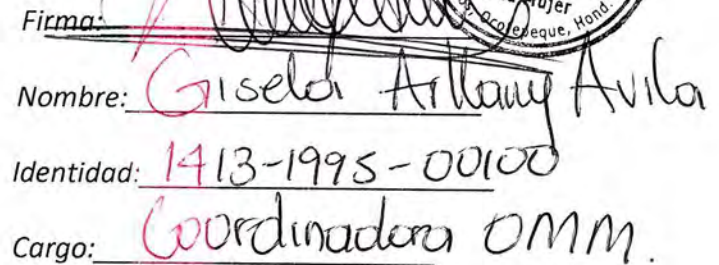 Mujer
Ocotepeque, Hond.
Firma:
Nombre: Gisela Arllany Avila
Identidad: 1413-1995-00100
Cargo: Coordinadora OMM.